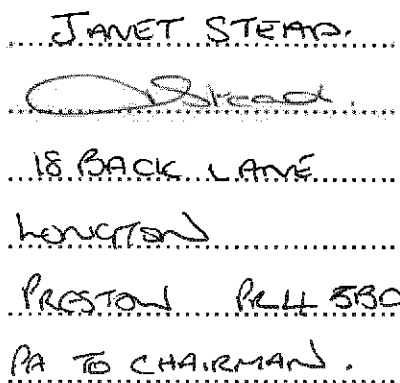 JANET STEAD.
JStead.
18 BACK LANE
LONGTON
PRESTON PR4 5BD
PA TO CHAIRMAN.